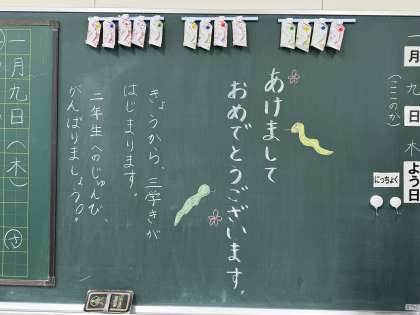 一
月
九
日
(ここのか)
木
よう日
にっちょく
あけまして
おめでとうございます。
きょうから、三学きが
はじまります。
二年生へのじゅんび、
がんばりましょう。
一月九日(木)
さ